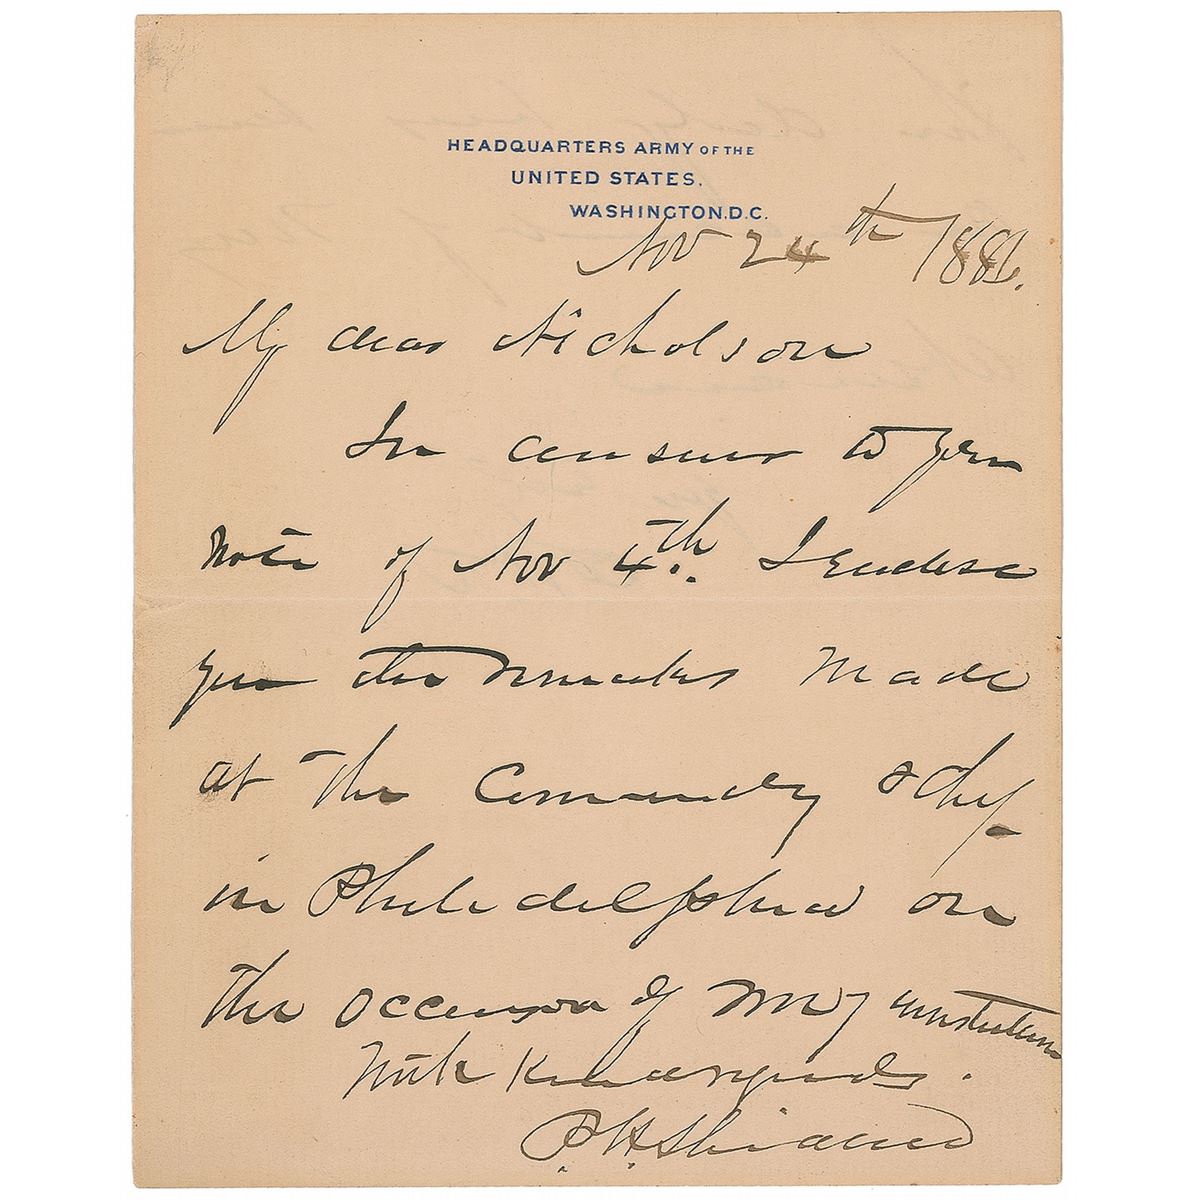 HEADQUARTERS ARMY OF THE
UNITED STATES,
WASHINGTON, D.C.
Nov 24th 1886.
My dear Nicholson
In answer to your
note of Nov 4th. I enclose
you the remarks made
at the Commandery
in Philadelphia on
the occasion of my
With Kind regards.
P. H. Sheridan